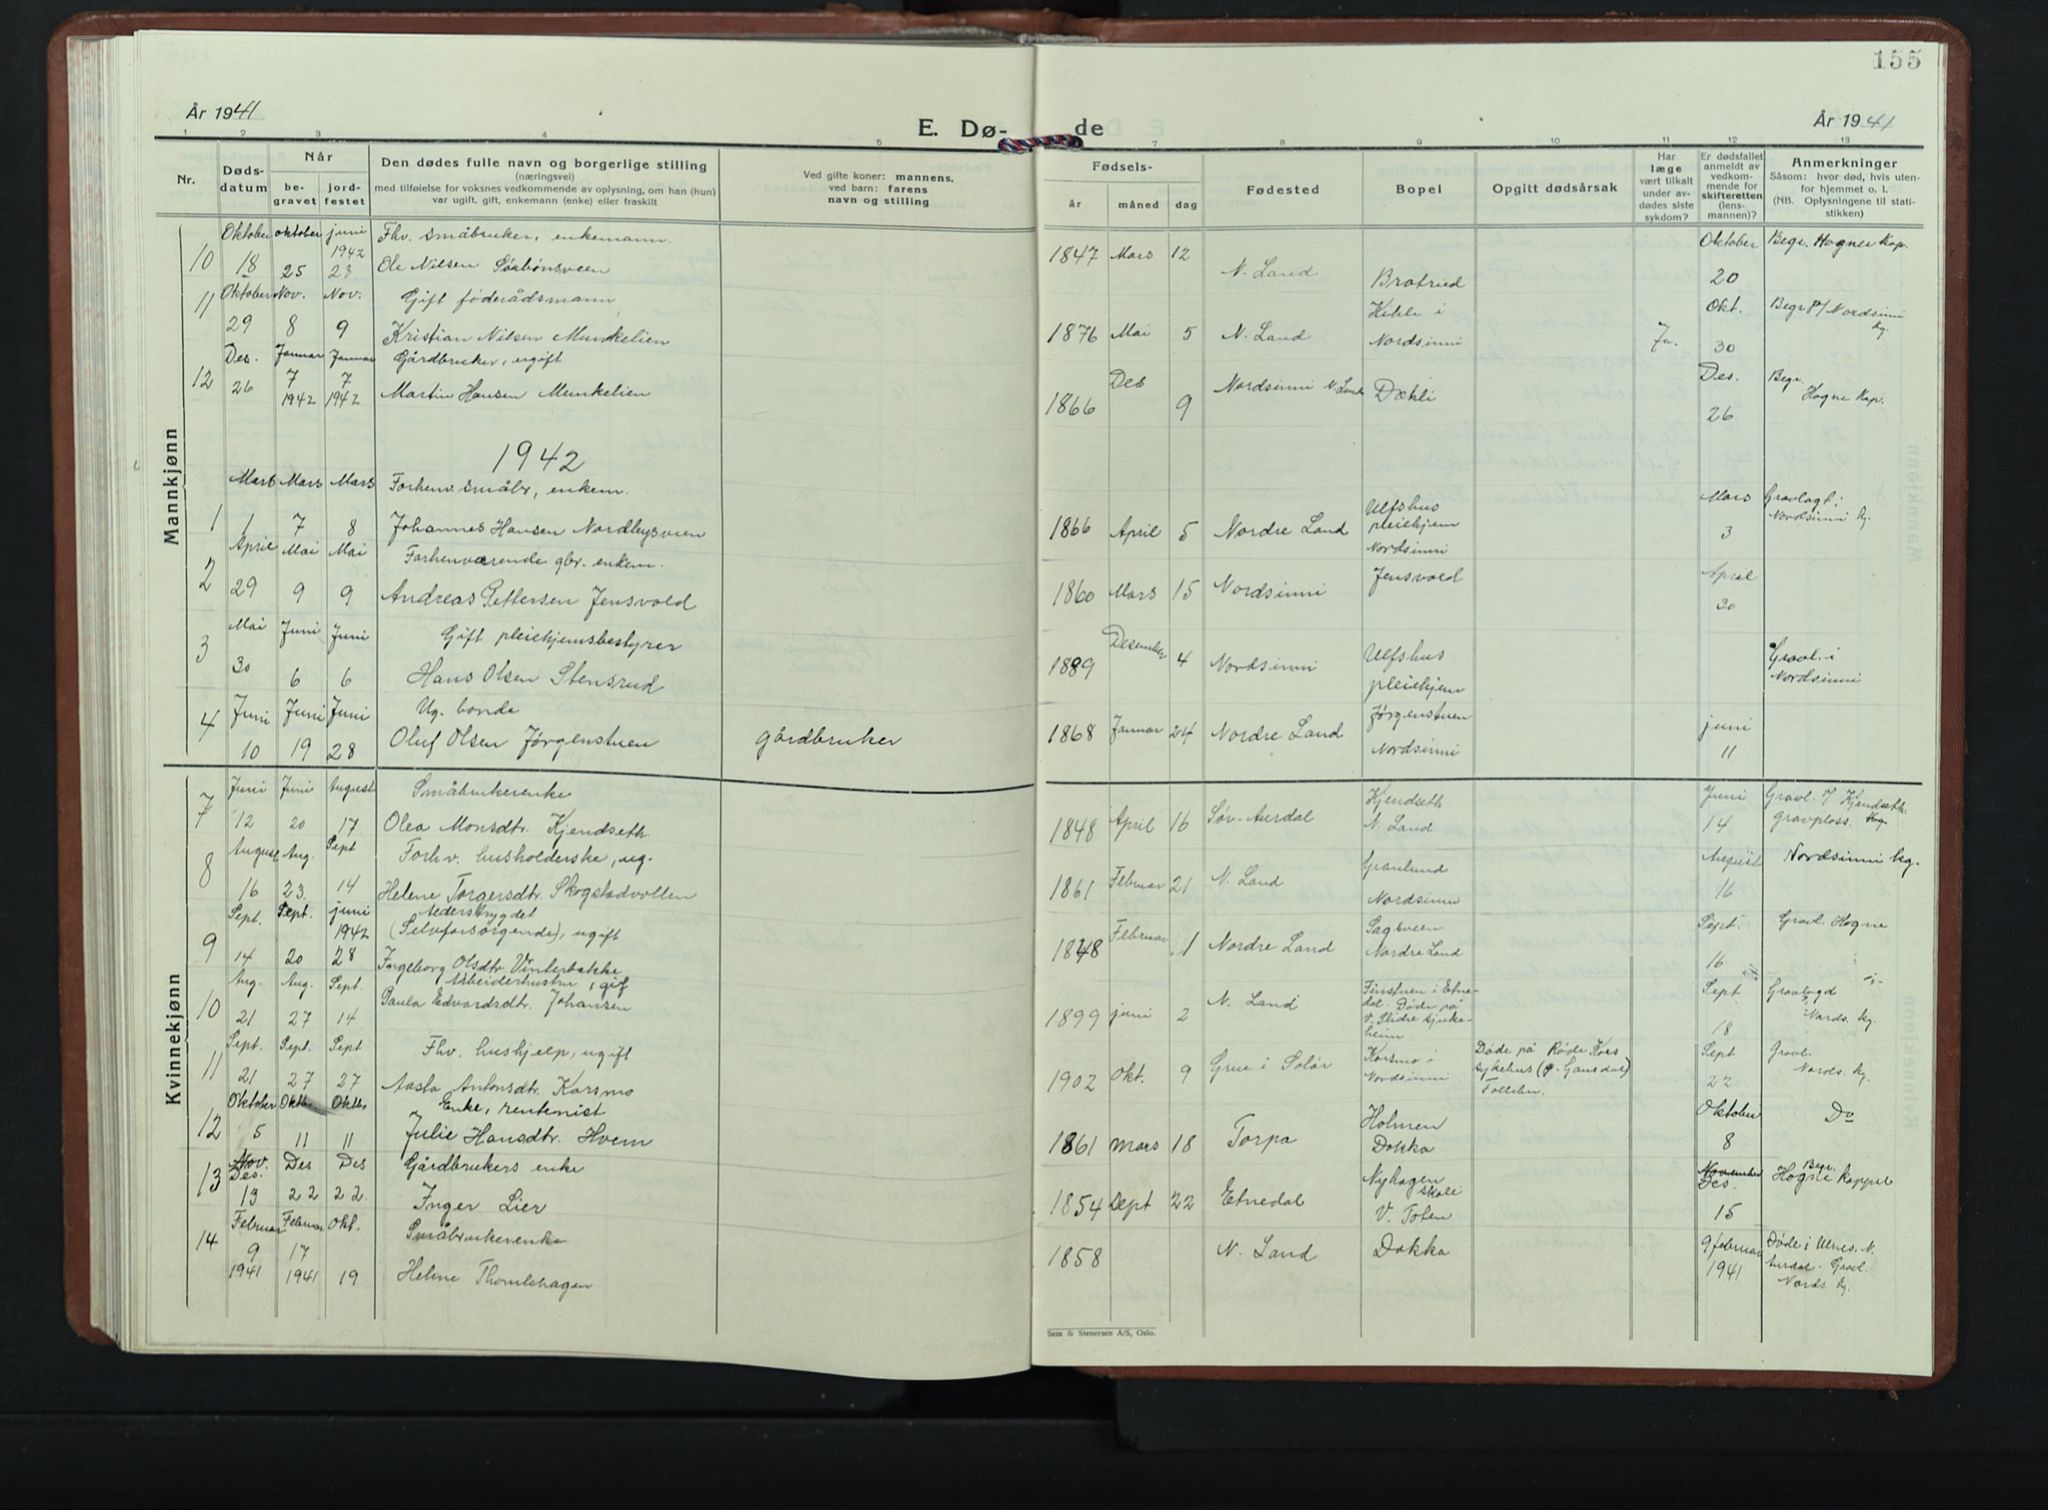 155
År 1941
E. Dø-
de
År 1941
1 2 3 4 5 7 8 9 10 11 12 13
Nr.
Døds-
datum
Når
be-
gravet
jord-
festet
Den dødes fulle navn og borgerlige stilling
(næringsvei)
med tilføielse for voksnes vedkommende av oplysning, om han (hun)
var ugift, gift, enkemann (enke) eller fraskilt
Ved gifte koner: mannens,
ved barn: farens
navn og stilling
Fødsels-
år måned dag
Fødested
Bopel
Opgitt dødsårsak
Har
læge
vært tilkalt
under av-
dødes siste
sykdom?
Er dødsfallet
anmeldt av
vedkom-
mende for
skifteretten
(lens-
mannen)?
Anmerkninger
Såsom: hvor død, hvis uten-
for hjemmet o. l.
(NB. Oplysningene til stati-
stikken)
Mannkjønn
Oktober oktober juni Fhv. småbruker, enkemann.
1942
10 18 25 28 Ole Nilsen Sørbønsveen
1847 Mars 12 N. Land Brotried Oktober 20 Begr. Hogne Kap.
11 Oktober Nov. Nov. Gift føderådsmann
29 8 9 Kristian Nilsen Munkelien
1876 Mai 5 N. Land Kihle i Nordsinni Ja. Okt. 30 Begr. på Nordsinni kg.
12 Des. Januar Januar Gårdbruker, ugift
26 7 7 Martin Hansen Munkelien
1942 1942
1866 Des 9 Nordsinni N. Land Dæhli Des. 26 Begr. Hogne Kap.
1942
Mars Mars Mars Forhenv. småbr, enkem.
1 1 7 8 Johannes Hansen Nordbysveen
1866 April 5 Nordre Land Ulfshus pleiehjem Nordsinni Mars 3 Gravlagt i Nordsinni kg.
2 April Mai Mai Forhenværende gbr. enkem.
29 9 9 Andreas Pettersen Jensvold
1860 Mars 15 Nordsinni Jensvold April 30
3 Mai Juni Juni Gift pleiehjemsbestyrer
30 6 6 Hans Olsen Stensrud
1889 Desember 4 Nordsinni Ulfshus pleiehjem Gravl. i Nordsinni
4 Juni Juni Juni Ug. bonde
10 19 28 Oluf Olsen Jørgenstuen gårdbruker
1868 Januar 24 Nordre Land Jørgenstuen Nordsinni juni 11
Kvinnekjønn
7 Juni Juni August Småbrukerenke
12 20 17 Olea Monsdtr. Kjendseth
1848 April 16 Sør-Aurdal Kjendseth N. Land Juni 14 Gravl. på Kjendseth gravplass.
8 August Aug. Sept Forhv. husholderske, ug.
16 23 14 Helene Torgersdtr. Skogstadvollen
1861 Februar 21 N. Land Granlund Nordsinni August 16 Nordsinni kg.
9 Sept. Sept. juni Alderstrygdet
1942 (Selvforsørgende), ugift
14 20 28 Ingeborg Olsdtr. Vinterbakke
1848 Februar 1 Nordre Land Sagsveen Nordre Land Sept. 16 Gravl. Hogne
10 Aug. Aug. Sept. Arbeiderhustru, gift
21 27 14 Paula Edvardsdtr. Johansen
1899 juni 2 N. Land Finstuen i Etne-
dal. Døde på
V. Slidre sjuke-
heim Sept 18 Gravlagd i Nords. kg.
11 Sept. Sept. Sept Fhv. hushjelp, ugift
21 27 27 Aasta Antonsdtr. Korsmo
1902 Okt. 9 Grue i Solør Korsmo i Nordsinni Døde på Røde Kors
sykehus (P. Gausdal)
Follebu. Sept 22 Gravl. Nords. kg.
12 Oktober Oktb. Oktb. Enke, rentenist
5 11 11 Julie Hansdtr. Hvem
1861 Mars 18 Torpa Holmen Dokka Oktober 8 Do
13 Nov. Des. Des Des Gårdbrukers enke
13 22 22. Inger Lier
1854 Sept 22 Etnedal Nyhagen skole V. Toten November Des. 15 Begr. Hogne kappel
14 Februar Februar Okt. Småbrukerenke
9 17 19 Helene Thomlehagen
1941 1941
1858 N. Land Dokka 9 februar 1941 Døde i Ulnes. N.
Aurdal. Gravl.
Nords. kg.
Sem & Stenersen A/S, Oslo.